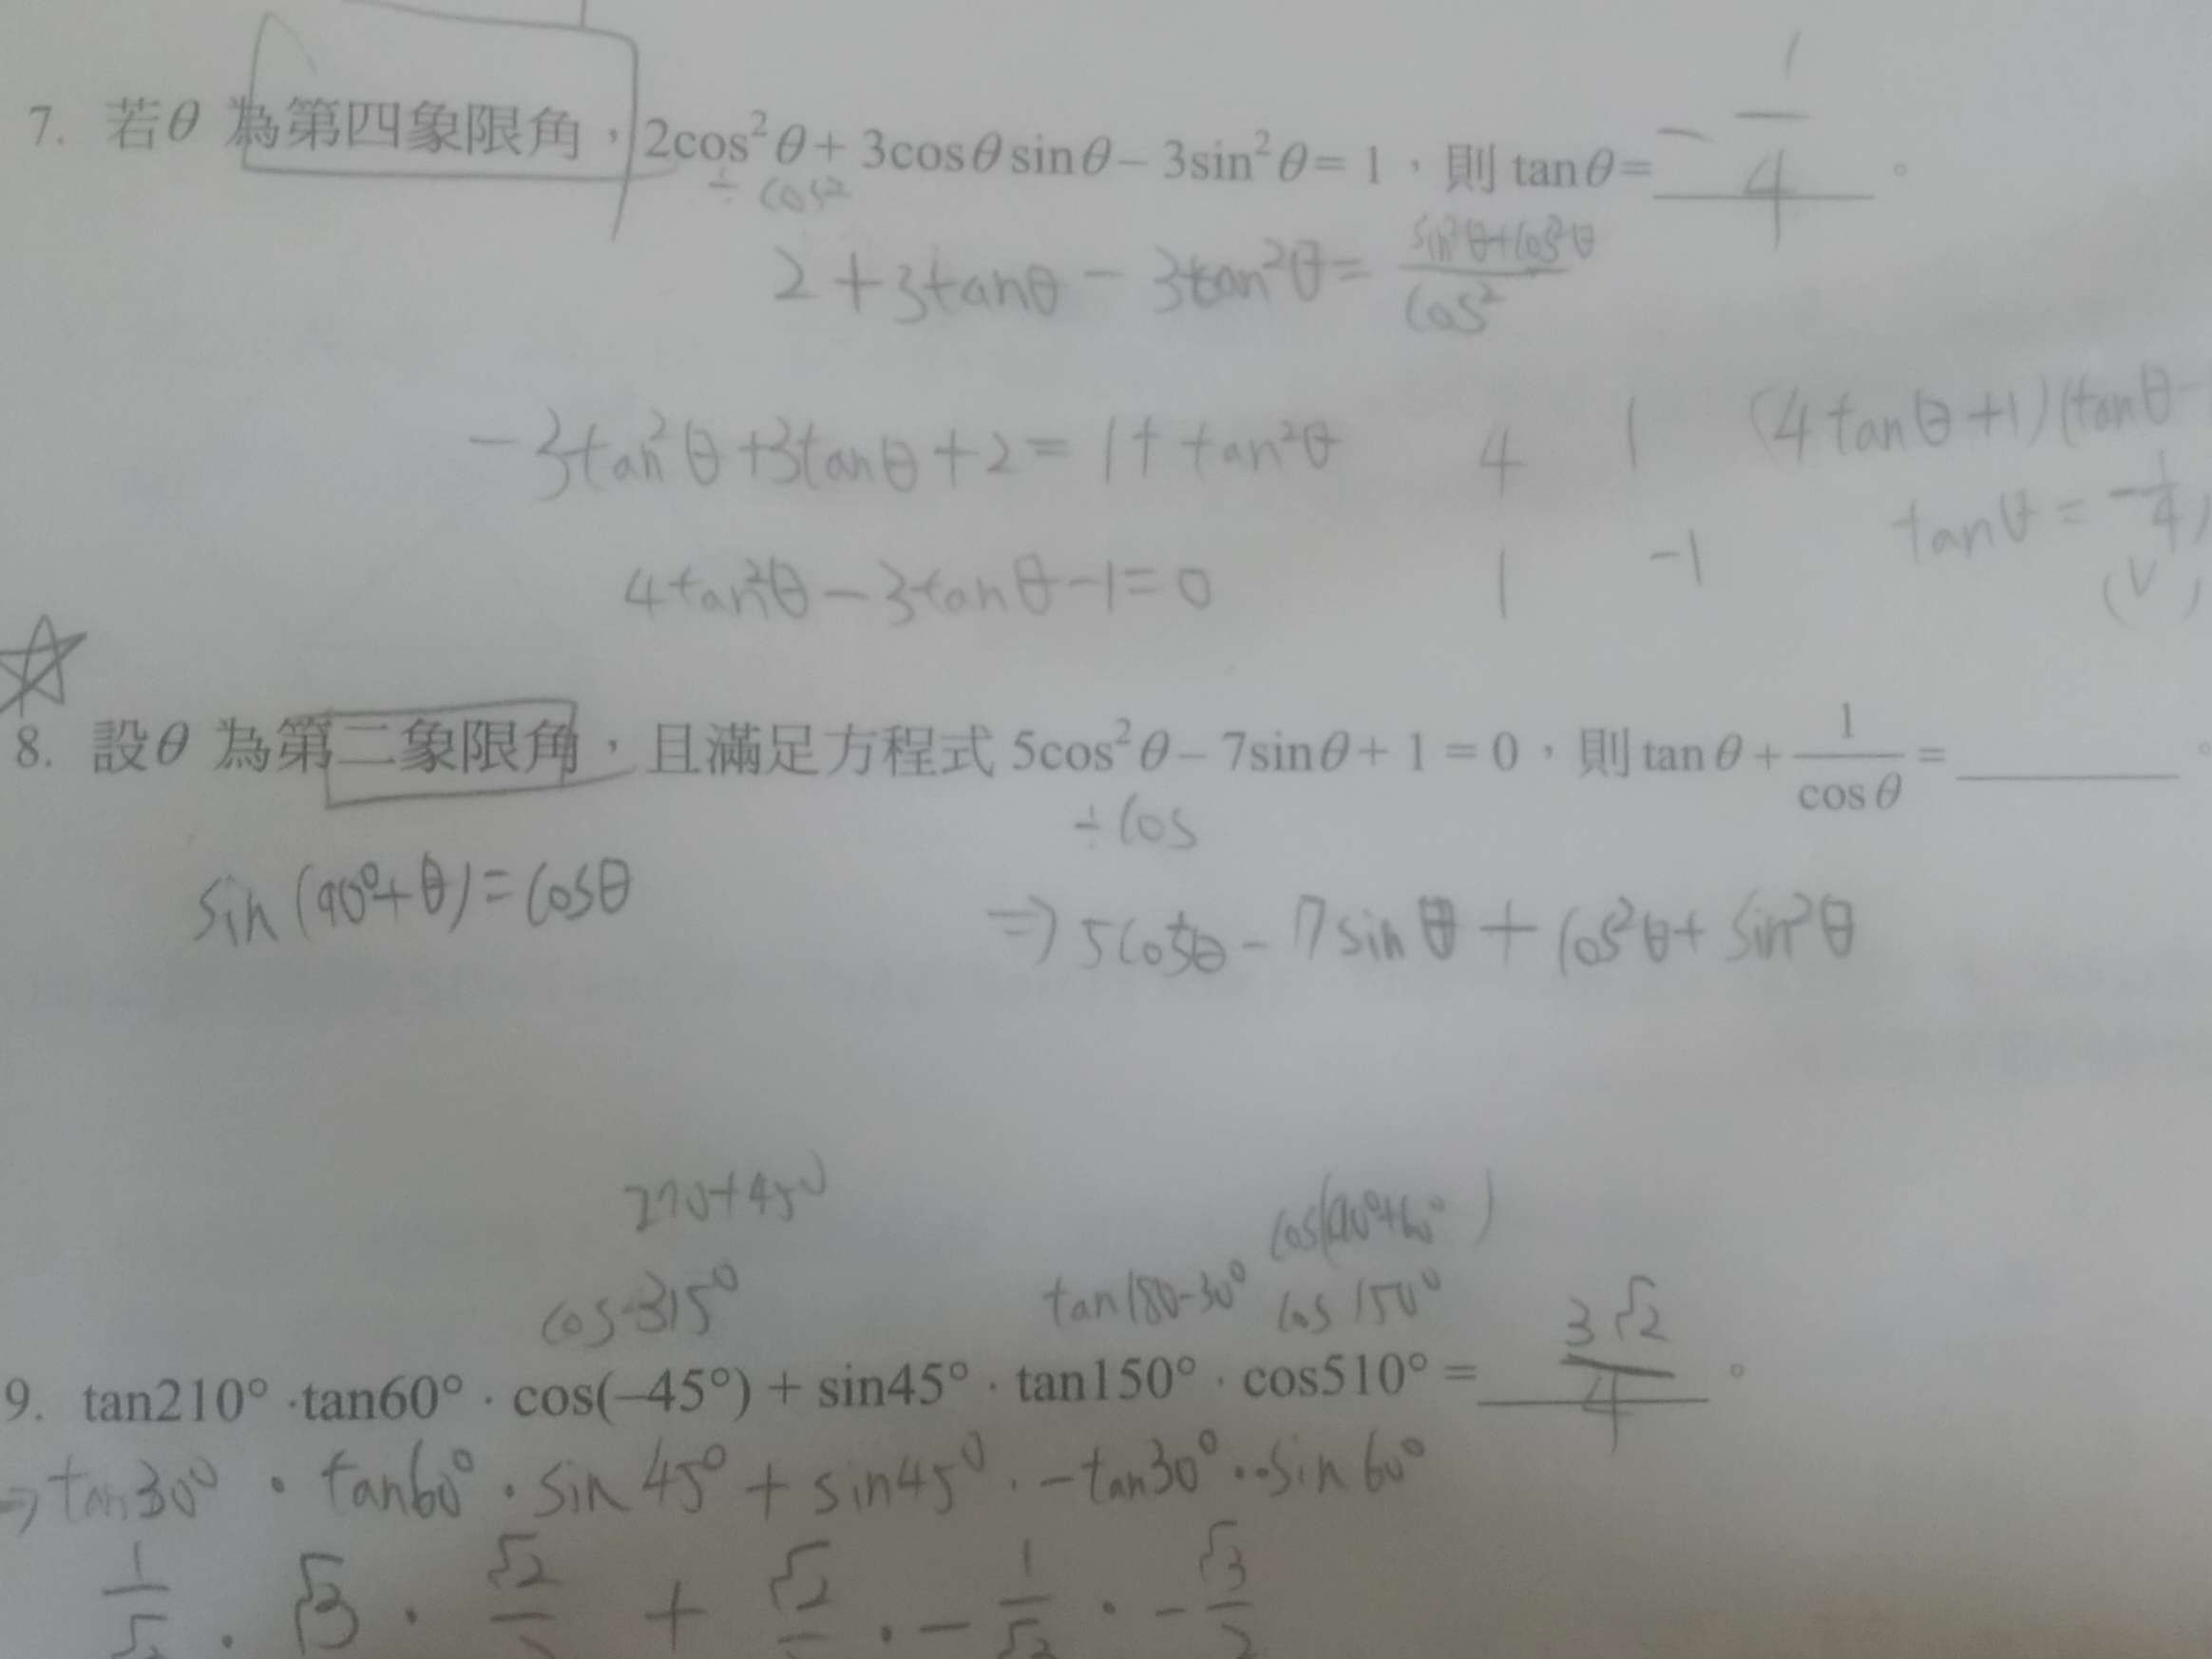 7. 若θ 為第四象限角，2cos²θ + 3cosθ sinθ – 3sin²θ = 1，則 tanθ = -1/4。
÷ cos²
2 + 3tanθ - 3tan²θ = (sin²θ + cos²θ)/cos²
-3tan²θ + 3tanθ + 2 = 1 + tan²θ 4 1 (4tanθ+1)(tanθ-
tanθ = -1/4,
4tan²θ - 3tanθ - 1 = 0 1 -1 (V)
8. 設θ 為第二象限角，且滿足方程式 5cos²θ – 7sinθ + 1 = 0，則 tanθ + 1/cosθ = ______。
÷ cos
sin(90°+θ) = cosθ ⇒ 5cos²θ - 7sinθ + cos²θ + sin²θ
270+45°
cos(90°+60°)
cos-315° tan180-30° cos150°
9. tan210° · tan60° · cos(–45°) + sin45° · tan150° · cos510° = 3√2/4。
⇒ tan30° · tan60° · sin45° + sin45° · -tan30° · -sin60°
√3 · √2 + √2 · - 1 · - √3/2